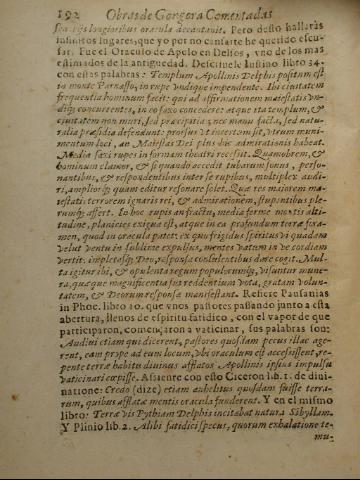 192 Obras de Gongora Comentadas
longioribus oracula decantauit. Pero desto hallaràs
infinitos lugares, que yo por no cansarte he querido escu-
sar. Fue el Oraculo de Apolo en Delfos, vno de los mas
estimados de la antiguedad. Descriuele Iustino libro 24.
con estas palabras: Templum Apollinis Delphis positum est
in monte Parnasso, in rupe vndique impendente. Ibi ciuitatem
frequentia hominum facit: qui ad affirmationem maiestatis vn-
dique concurrentes, in eo saxo consedere: atque ita templum, &
ciuitatem non muri, sed præcipitia; nec manu facta, sed natu-
ralia præsidia defendunt: prorsus vt incertum sit, vtrum muni-
mentum loci, an Maiestas Dei plus hic admirationis habeat.
Media saxi rupes in formam theatri recessit. Quamobrem, &
hominum clamor, & si quando accedit tubarum sonus, perso-
nantibus, & respondentibus inter se rupibus, multiplex audi-
ri, ampliorq; quam editur resonare solet. Quæ res maiorem ma-
iestatis terrorem ignaris rei, & admirationem, stupentibus ple-
rumq; affert. In hoc rupis anfractu, media ferme montis alti-
tudine, planicies exigua est, atque in ea profundum terræ fora-
men, quod in oracula patet: ex quo frigidus spiritus vi quadam
velut vento in sublime expulsus, mentes vatum in vecordiam
vertit. impletasq; Deo, responsa consulentibus dare cogit. Mul-
ta igitur ibi, & opulenta regum populorumq; visuntur mune-
ra, quæque magnificentia sui reddentium vota, gratam volun-
tatem, & Deorum responsa manifestant. Refiere Pausanias
in Phoc. libro 10. que vnos pastores passando junto a esta
abertura, llenos de espiritu fatidico, con el vapor de que
participaron, començaron a vaticinar, sus palabras son:
Audiui etiam qui dicerent, pastores quosdam pecus illac age-
rent, eam prope ad eum locum, vbi oraculum est accessissent, re-
pente terræ habitu diuinus afflatos Apollinis ipsius impulsu
vaticinari cœpisse. Assiente con esto Ciceron lib. 1. de diui-
natione: Credo (dize) etiam anhelitus quosdam fuisse terra-
rum, quibus afflatæ mentis oracula funderent. Y en el mismo
libro: Terræ vis Pythiam Delphis incitabat natura Sibyllam.
Y Plinio lib. 2. Alibi fatidici specus, quorum exhalatione te-
mu-